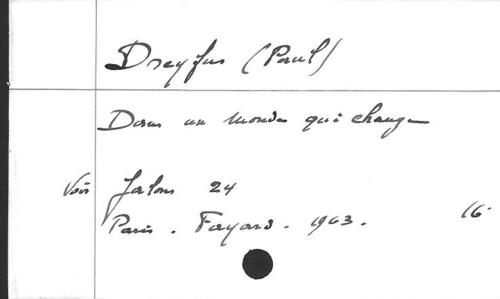 Dreyfus (Paul)
Dans un monde qui change
Voir Jalons 24
Paris. Fayard. 1963. 16°